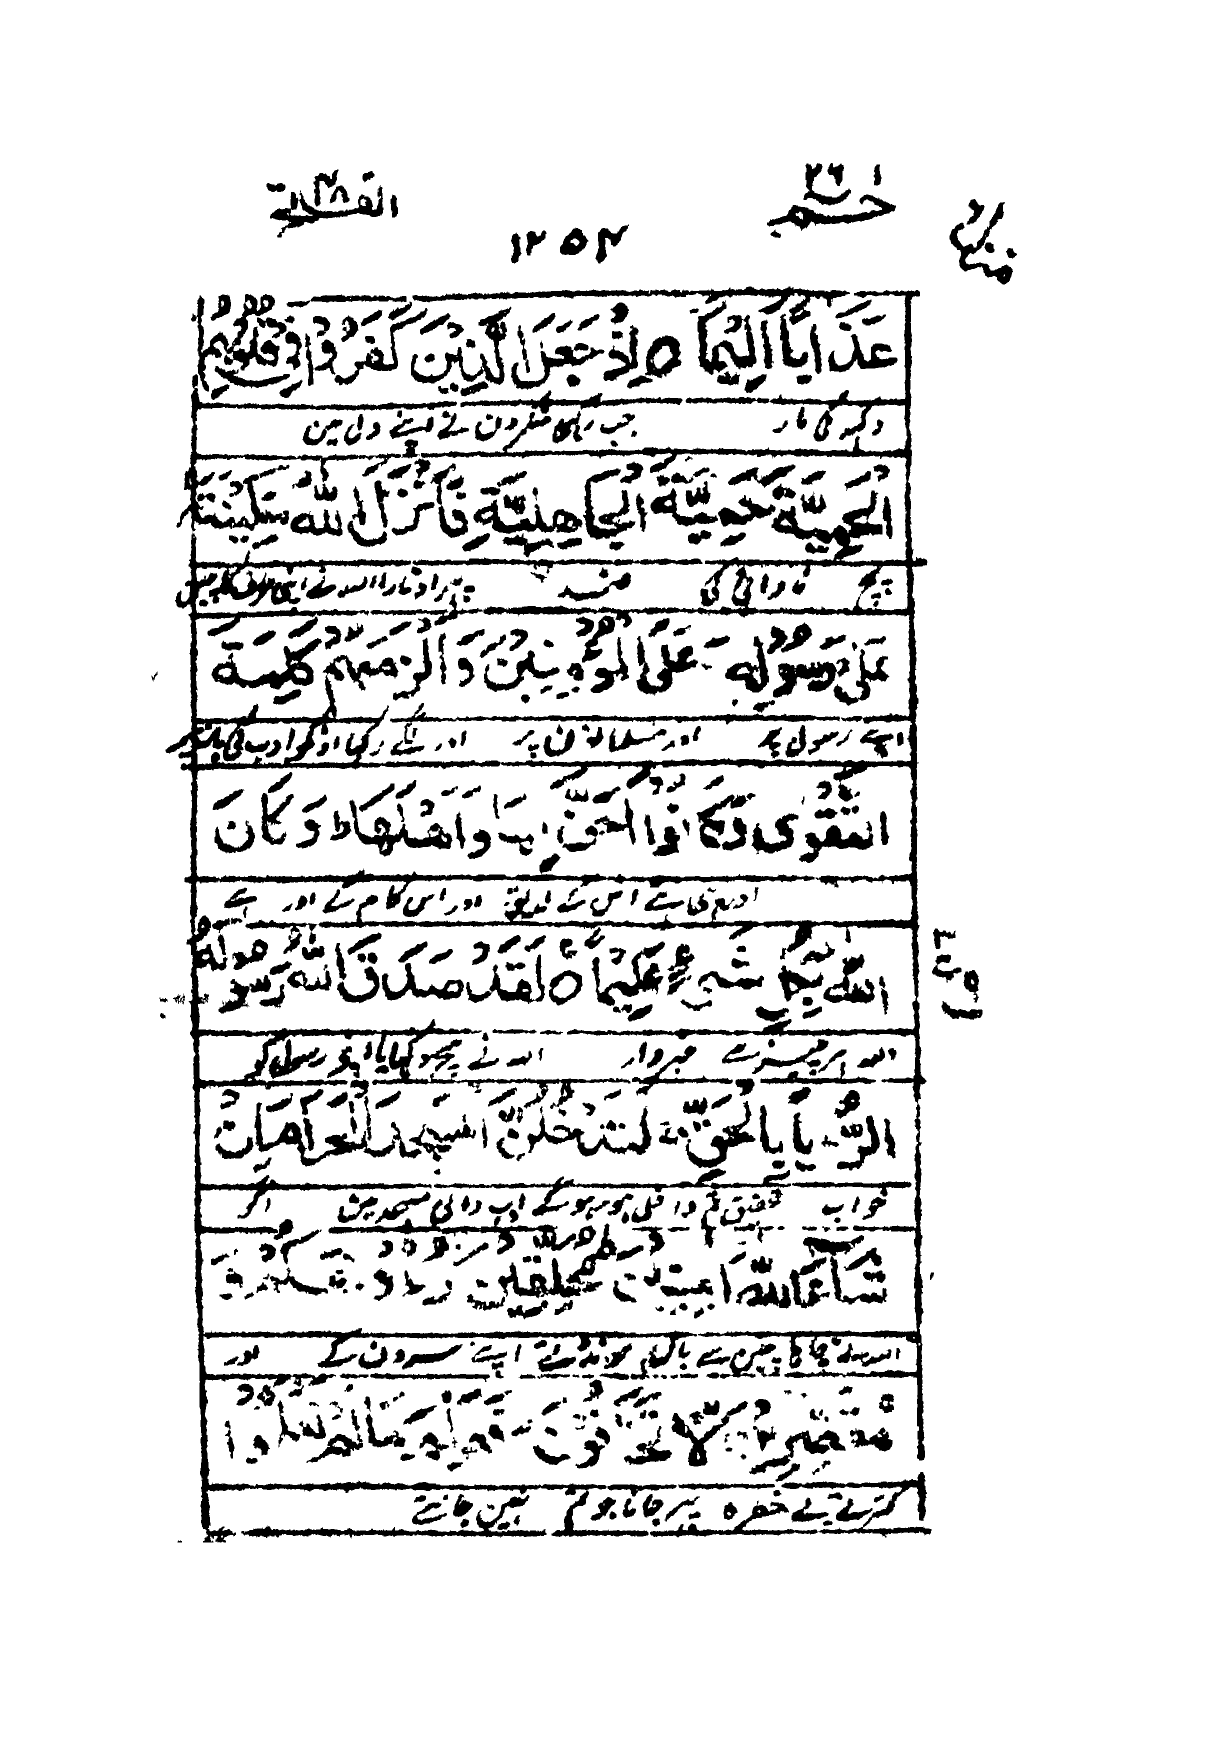 حٰم ٢٦
الفتح ٤٨
منزل
١٢٥٤
عَذَابًا اَلِيْمًا ○ اِذْ جَعَلَ الَّذِيْنَ كَفَرُوْا فِيْ قُلُوْبِهِمُ
دکھہ کی مار جب رکھی منکرون نے اپنے دل مین
الْحَمِيَّةَ حَمِيَّةَ الْجَاهِلِيَّةِ فَاَنْزَلَ اللّٰهُ سَكِيْنَتَهٗ
پیچ نادانی کی ضد پہر اوتارا اللہ نے اپنی طرف کا چین
عَلٰى رَسُوْلِهٖ وَعَلَى الْمُؤْمِنِيْنَ وَاَلْزَمَهُمْ كَلِمَةَ
اپنے رسول پر اور مسلمانون پر اور لگے رکھا اونکو ادب کی بات پر
التَّقْوٰى وَكَانُوْا اَحَقَّ بِهَا وَاَهْلَهَا ط وَكَانَ
اور وہی تہے اس کے لایق اور اس کام کے اور ہے
اللّٰهُ بِكُلِّ شَيْءٍ عَلِيْمًا ○ لَقَدْ صَدَقَ اللّٰهُ رَسُوْلَهُ
اللہ ہر چیز سے خبردار اللہ نے سچ دکھایا اپنے رسول کو
الرُّءْيَا بِالْحَقِّ لَتَدْخُلُنَّ الْمَسْجِدَ الْحَرَامَ اِنْ
خواب تحقیق تم داخل ہو رہوگے ادب والی مسجد مین اگر
شَآءَ اللّٰهُ اٰمِنِيْنَ مُحَلِّقِيْنَ رُءُوْسَكُمْ وَ
اللہ نے چاہا چین سے بال مونڈتے اپنے سرون کے اور
مُقَصِّرِيْنَ لَا تَخَافُوْنَ فَعَلِمَ مَا لَمْ تَعْلَمُوْا
کترتے بے خطرہ پہر جانا جو تم نہین جانتے